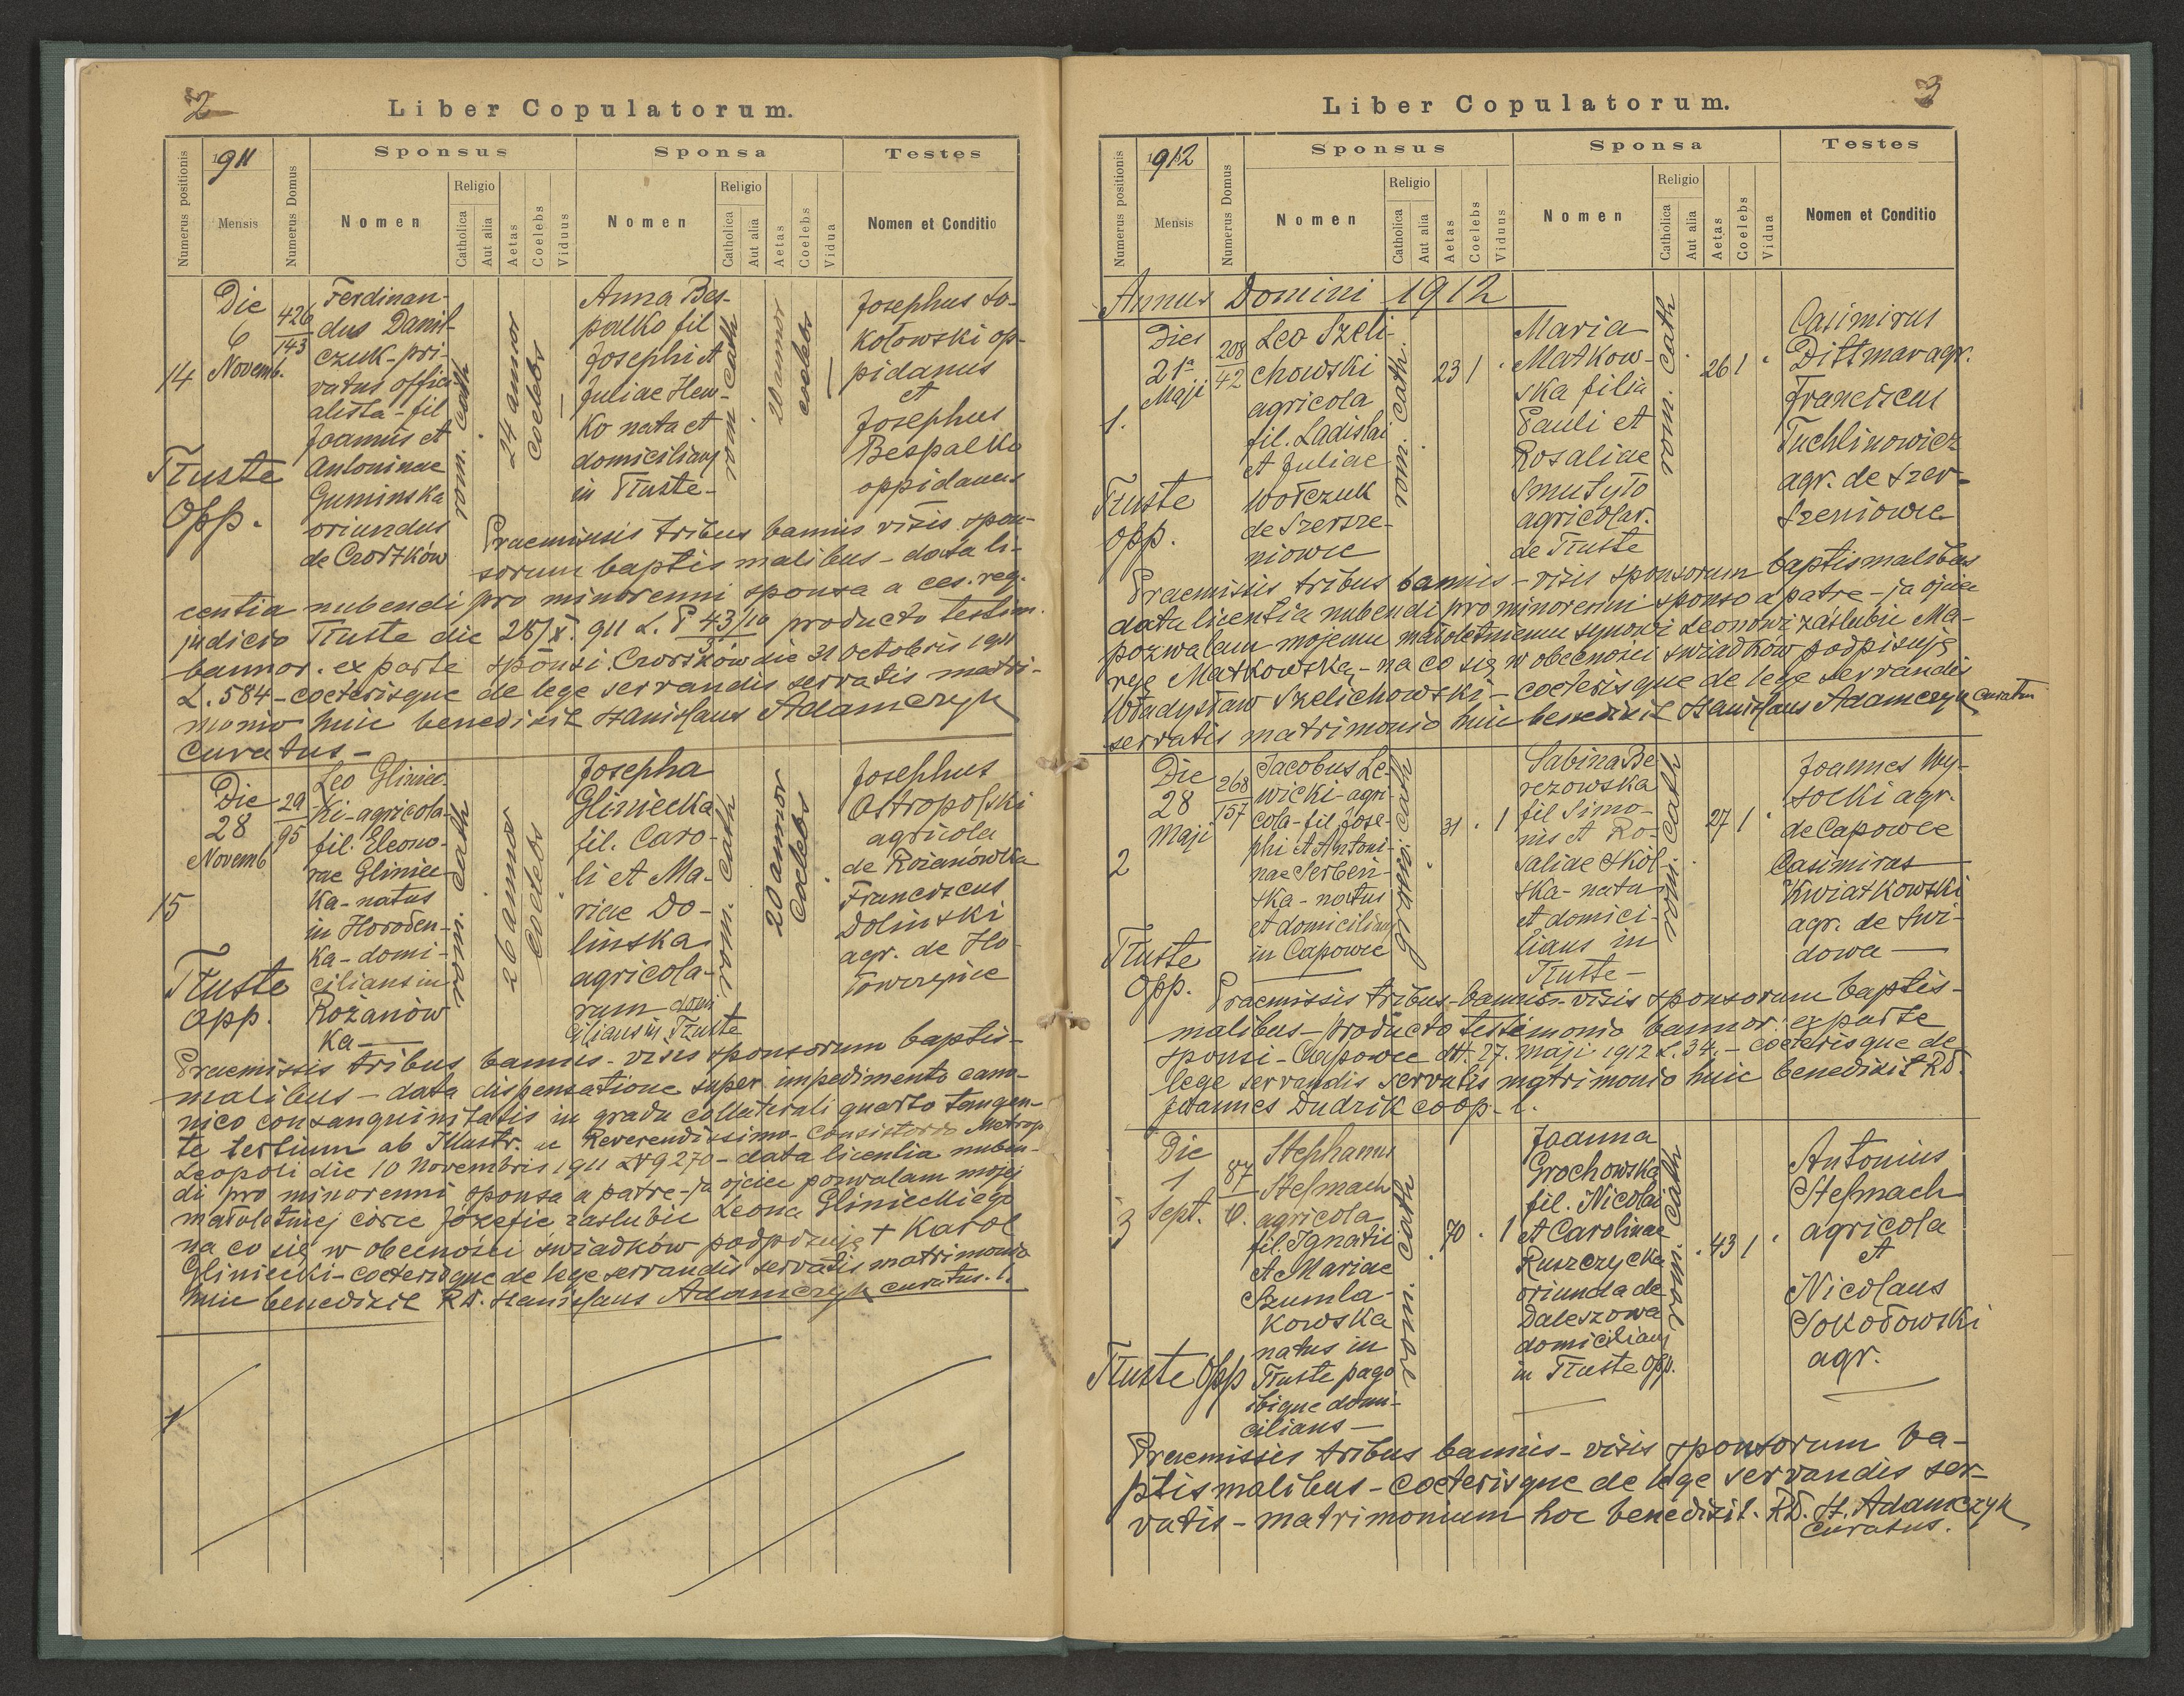 2
Liber Copulatorum.
Numerus positionis
1911
Mensis
Numerus Domus
Sponsus
Nomen
Religio
Catholica
Aut alia
Aetas
Coelebs
Viduus
Sponsa
Nomen
Religio
Catholica
Aut alia
Aetas
Coelebs
Vidua
Testes
Nomen et Conditio
14
Die
6
Novemb.
Tłuste
Opp.
426
143
Ferdinan-
dus Danil-
czuk - pri-
vatus offici
alista - fil
Joannis et
Antoninae
Guminska
oriundus
de Czortków
rom. cath
24 annor
coelebs
Anna Bes-
palko fil
Josephi et
Juliae Hew-
ko nata et
domicilians
in Tłuste -
rom. cath
20 annor
coelebs
Josephus So-
kołowski op-
pidanus
et
Josephus
Bespalko
oppidanus
Praemissis tribus bannis visis spon-
sorum baptismalibus - data li-
centia nubendi pro minorenni sponsa a ces. reg.
judicio Tłuste die 28/X. 911 L. P 43/10 producto testim.
bannor. ex parte sponsi. Czortków die 31 octobris 1911
L. 584 - coeterisque de lege servandis servatis matri-
monio huic benedixit Stanislaus Adamczyk
curatus -
15
Die
28
Novemb
Tłuste
opp.
29
95
Leo Gliniec-
ki - agricola
fil. Eleono-
rae Gliniec-
ka - natus
in Horoden-
ka - domi-
cilians in
Rożanów
ka -
rom. cath
26 annor
coelebs
Josepha
Gliniecka
fil. Caro-
li et Ma-
riae Do-
linska
agricola-
rum - domi
cilians in Tłuste
rom. cath
20 annor
coelebs
Josephus
Ostropolski
agricola
de Rożanówka
Franciscus
Dolinski
agr. de Ho-
łowczyńce
Praemissis tribus bannis - visis sponsorum baptis-
malibus - data dispensatione super impedimento cano-
nico consanquinitatis in gradu collaterali quarto tangen-
te tertium ab Illustr. ac Reverendissimo - Consistorio Metrop.
Leopoli die 10 Novembris 1911 L 9270 - data licentia nuben-
di pro minorenni sponsa a patre - ja ojciec pozwalam mojej
małoletniej córce Józefie zaslubic Leona Glinieckiego
na co się w obecności świadków podpisuję + Karol
Gliniecki - coeterisque de lege servandis servatis matrimonio
huic benedixit RD. Stanislaus Adamczyk curatus. l.
3
Liber Copulatorum.
Numerus positionis
1912
Mensis
Numerus Domus
Sponsus
Nomen
Religio
Catholica
Aut alia
Aetas
Coelebs
Viduus
Sponsa
Nomen
Religio
Catholica
Aut alia
Aetas
Coelebs
Vidua
Testes
Nomen et Conditio
Annus Domini 1912
Dies
21a
Maji
1.
Tłuste
opp.
208
42
Leo Szeli-
chowski
agricola
fil. Ladislai
et Juliae
Wołczuk
de Szersze-
niowce
rom. cath.
23 1
Maria
Matkow-
ska filia
Pauli et
Rosaliae
Smutyło
agricolar.
de Tłuste
rom. cath
26 1
Casimirus
Dittmar agr.
Franciscus
Tuchlinowicz
agr. de Szer-
szeniowce
Praemissis tribus bannis - visis sponsorum baptismalibus
data licentia nubendi pro minorenni sponso a patre - ja ojciec
pozwalam mojemu małoletniemu synowi Leonowi zaślubic Ma-
ryę Matkowską, - na co się w obecności swiadków podpisuję
Władysław Szelichowski - coeterisque de lege servandis
servatis matrimonio huic benedixit Stanislaus Adamczyk curatus
Die
28
Maji
2
Tłuste
opp.
268
157
Jacobus Le-
wicki - agri-
cola - fil Jose-
phi et Antoni-
nae Serben-
ska - natus
et domicilians
in Capowce
graeco. cath
31 . 1
Sabina Be
rezowska
fil Simo-
nis et Ro-
saliae Skól-
ska - nata
et domici-
lians in
Tłuste -
rom. cath
27 1
Joannes Wy-
socki agr.
de Capowce
Casimirus
Kwiatkowski
agr. de Swi-
dowa
Praemissis tribus - bannis - visis sponsorum baptis-
malibus - producto testimonio bannor: ex parte
sponsi - Capowce dtt. 27. maji 1912 L. 34. - coeterisque de
lege servandis servatis matrimonio huic benedixit RD.
Joannes Dudzik coop - l.
Die
1
Sept.
3
Tłuste Opp
87
Stephanus
Stelmach
agricola
fil. Ignatii
et Mariae
Szumla-
kowska
natus in
Tłuste pago
ibique domi-
cilians -
rom. cath
70 . 1
Joanna
Grochowska
fil. Nicolai
et Carolinae
Ruszczycka
oriunda de
Daleszowa
domicilians
in Tłuste opp.
rom. cath
43 1
Antonius
Stelmach
agricola
et
Nicolaus
Sokołowski
agr.
Praemissis tribus bannis - visis sponsorum ba-
ptismalibus - coeterisque de lege servandis ser-
vatis - matrimonium hoc benedixit. RD. St. Adamczyk
curatus.